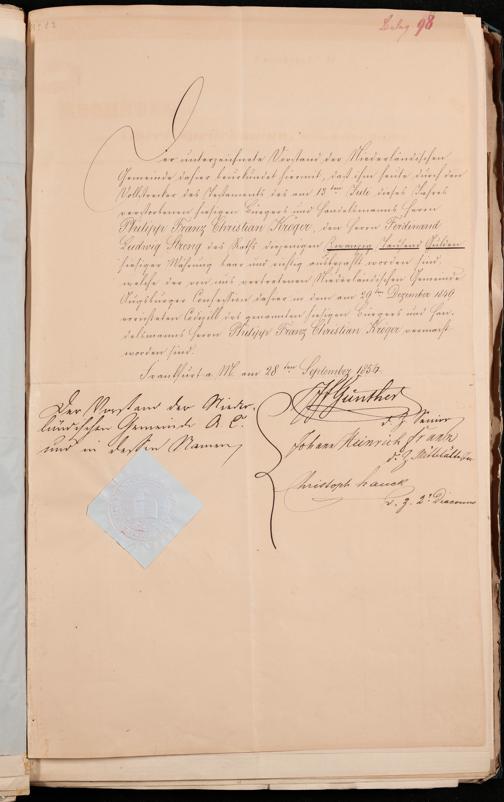 Beleg 98
Der unterzeichnete Vorstand der Niederländischen
Gemeinde daher beurkundet hiermit, daß ihm heute durch den
Vollstrecker des Testaments des am 13ten Juli dieses Jahres
verstorbenen hiesigen Bürgers und Handelsmanns Herrn
Philipp Franz Christian Kreger, den Herrn Ferdinand
Ludwig Streng des Raths diejenigen Zwanzig Tausend Gulden
hiesiger Währung baar und richtig ausbezahlt worden sind,
welche der von uns vertretenen Niederländischen Gemeinde
Augsburger Confession daher in dem am 29ten Dezember 1849
errichteten Codizill des genannten hiesigen Bürgers und Han-
delsmanns Herrn Philipp Franz Christian Kreger vermacht
worden sind.
Frankfurt a. M. am 28ten September 1854.
Der Vorstand der Nieder-
ländischen Gemeinde A. C.
und in dessen Namen,
Günther
d. Z. Senior
Johann Heinrich Frank
d. Z.
Christoph Hauck
d. Z. 2r Diaconus